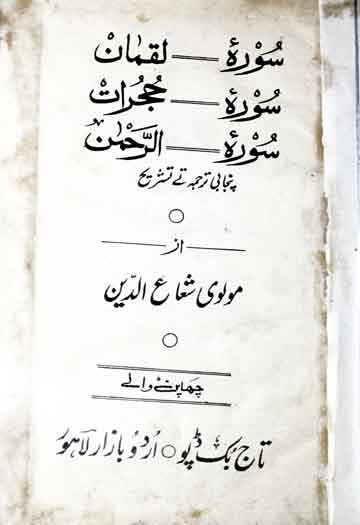 سُوْرۂ — لقمان
سُوْرۂ — حُجُرات
سُوْرۂ — الرَّحمٰن
پنجابی ترجمہ تے تشریح
از
مولوی شعاع الدّین
چھاپن والے
تاج بُک ڈپو ○ اردو بازار لاہور